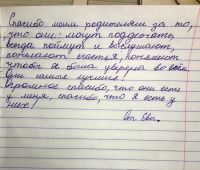 Спасибо моим родителям за то,
что они: могут поддержать,
всегда поймут и выслушают,
пожелают счастья, помогают
чтобы я была уверена во всём.
Они самые лучшие!
Огромное спасибо, что они есть
у меня, спасибо, что я есть у
них!
От Евы.